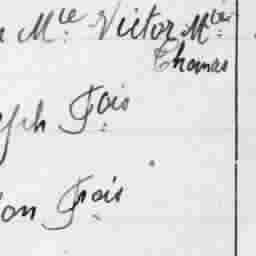 Mle Victor Mle
Thomas
ph Fois
on Frois